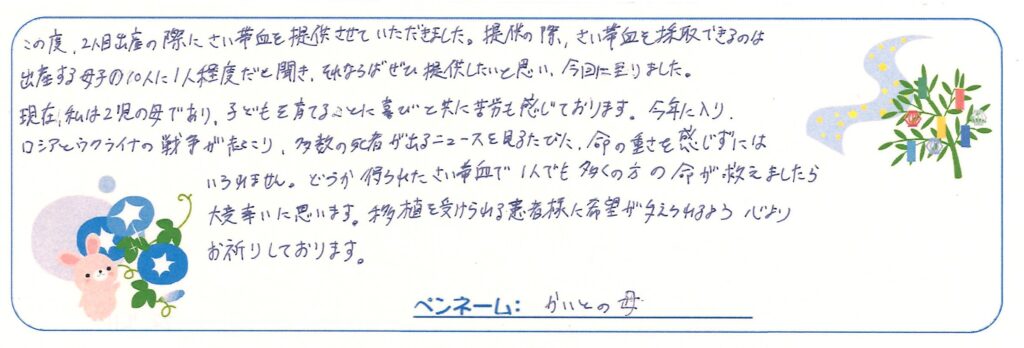 この度、2人目出産の際にさい帯血を提供させていただきました。提供の際、さい帯血を採取できるのは
出産する母子の10人に1人程度だと聞き、それならばぜひ提供したいと思い、今回に至りました。
現在、私は2児の母であり、子どもを育てることに喜びと共に苦労も感じております。今年に入り、
ロシアとウクライナの戦争が起こり、多数の死者が出るニュースを見るたびに、命の重さを感じずには
いられません。どうか得られたさい帯血で1人でも多くの方の命が救えましたら
大変幸いに思います。移植を受けられる患者様に希望が与えられるよう心より
お祈りしております。
ペンネーム: かいとの母